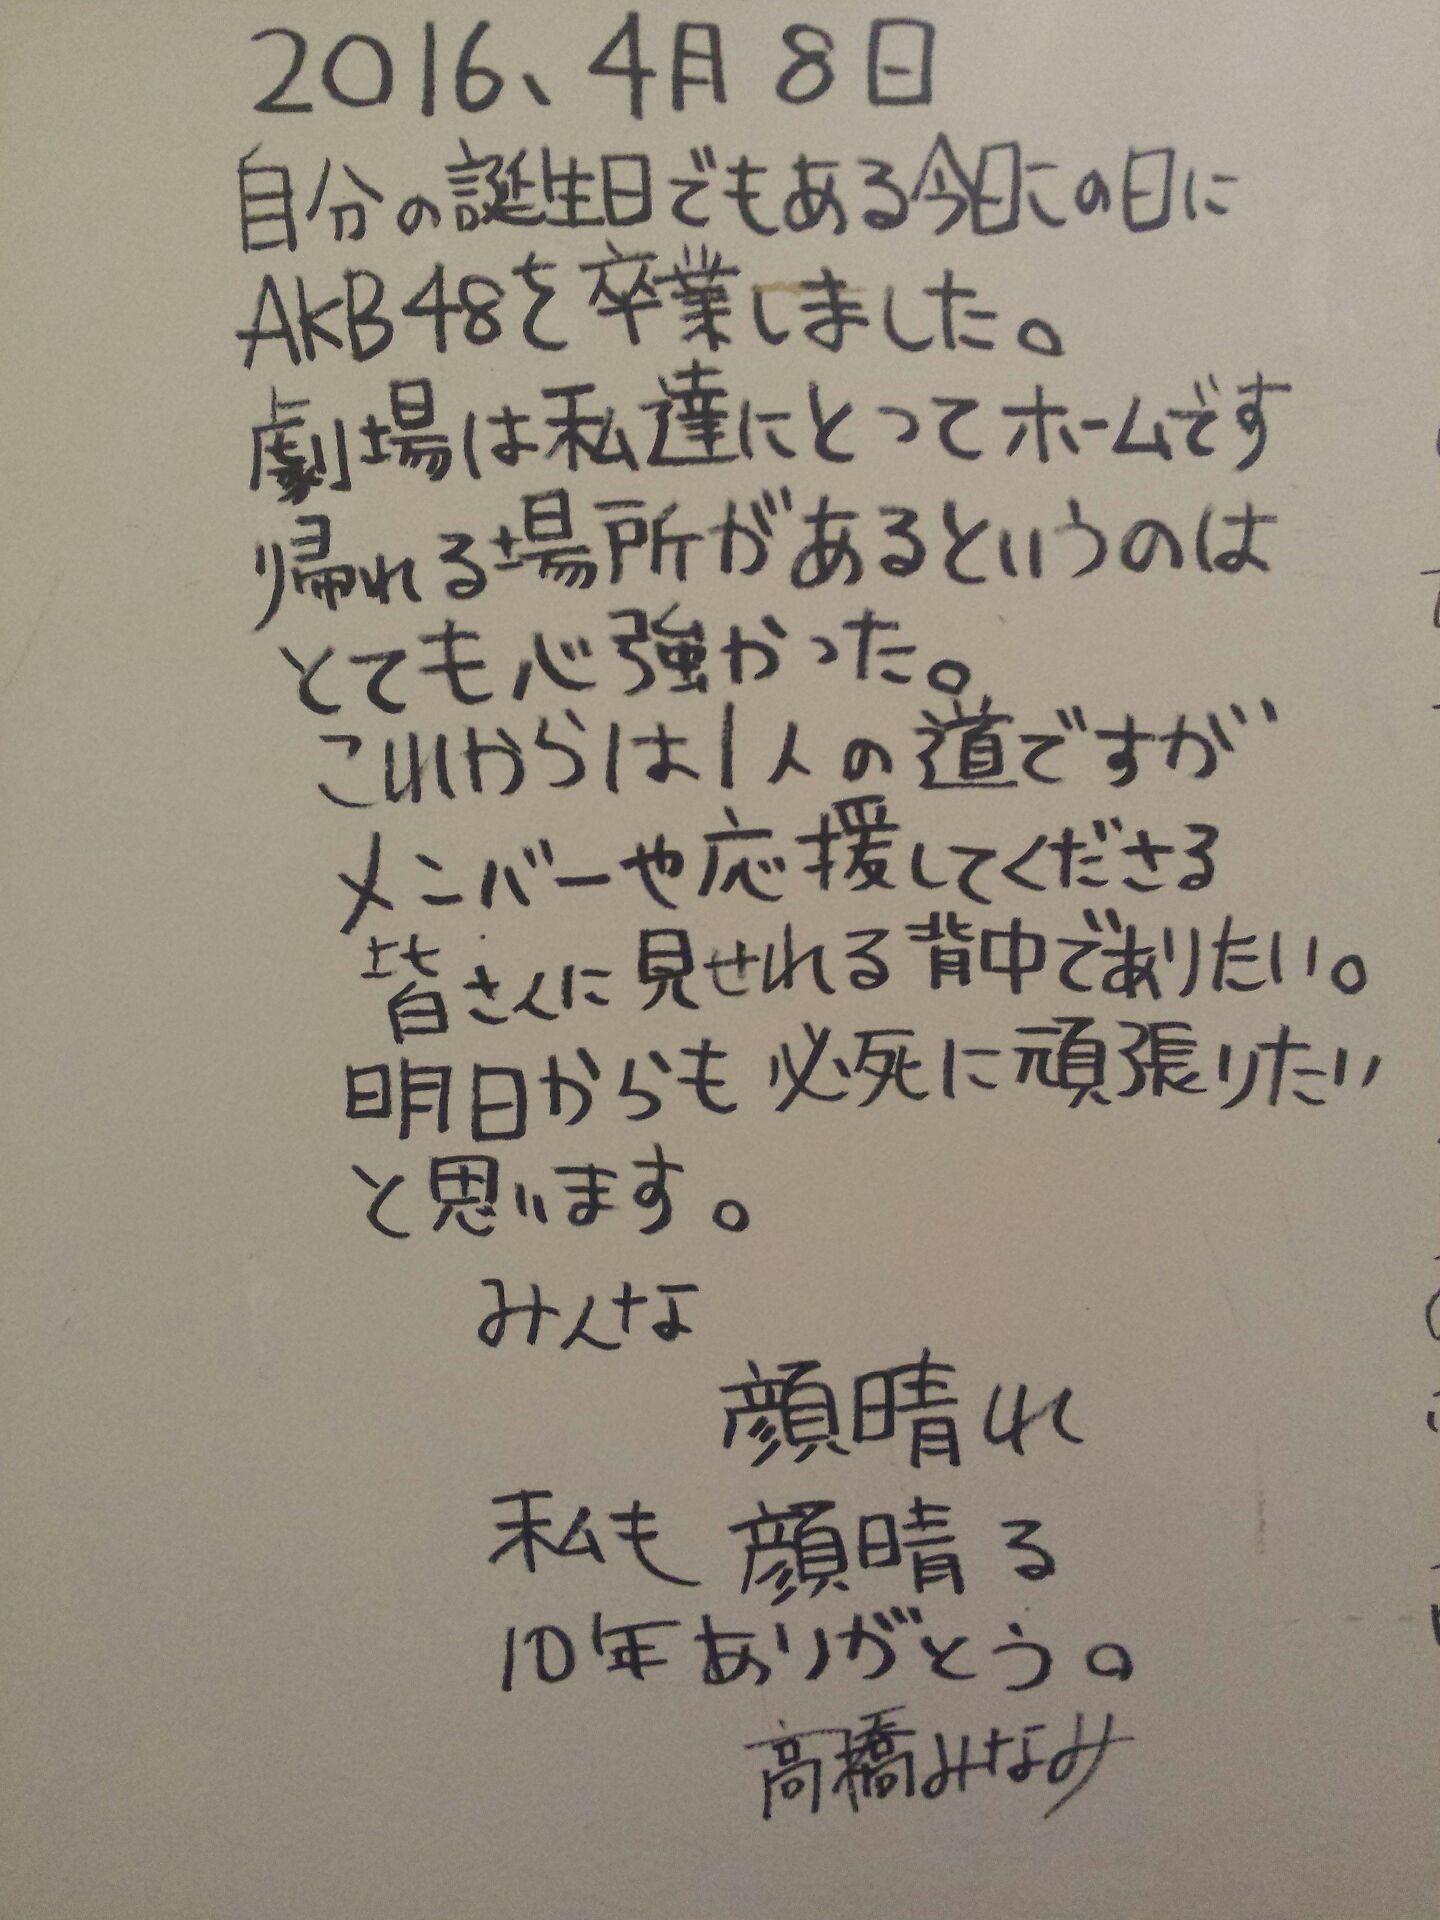 2016、4月8日
自分の誕生日でもある今日この日に
AKB48を卒業しました。
劇場は私達にとってホームです
帰れる場所があるというのは
とても心強かった。
これからは1人の道ですが
メンバーや応援してくださる
皆さんに見せれる背中でありたい。
明日からも必死に頑張りたい
と思います。
みんな
顔晴れ
私も 顔晴る
10年ありがとう。
高橋みなみ